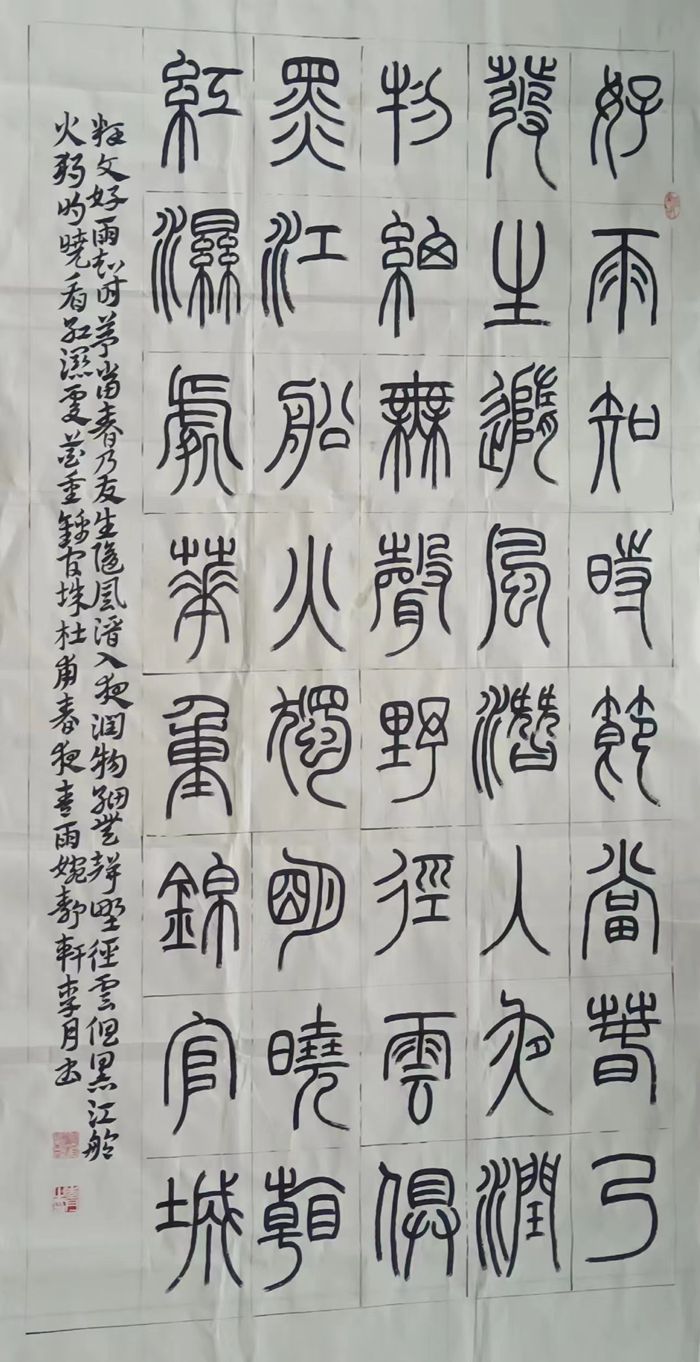 好雨知時節當春乃
發生隨風潛入夜潤
物細無聲野徑雲俱
黑江船火獨明曉看
紅濕處華重錦官城
釋文好雨知时节當春乃发生随風潜入夜润物细無聲野徑雲俱黑江船
火独明曉看红濕處花重錦官城杜甫春夜喜雨婉静軒李月书